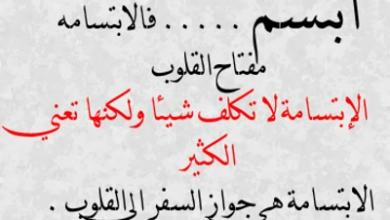 ابسم . . . . . فالابتسامه
مفتاح القلوب
الإبتسامة لا تكلف شيئا ولكنها تعني
الكثير
الابتسامة هي جواز السفر الى القلوب .